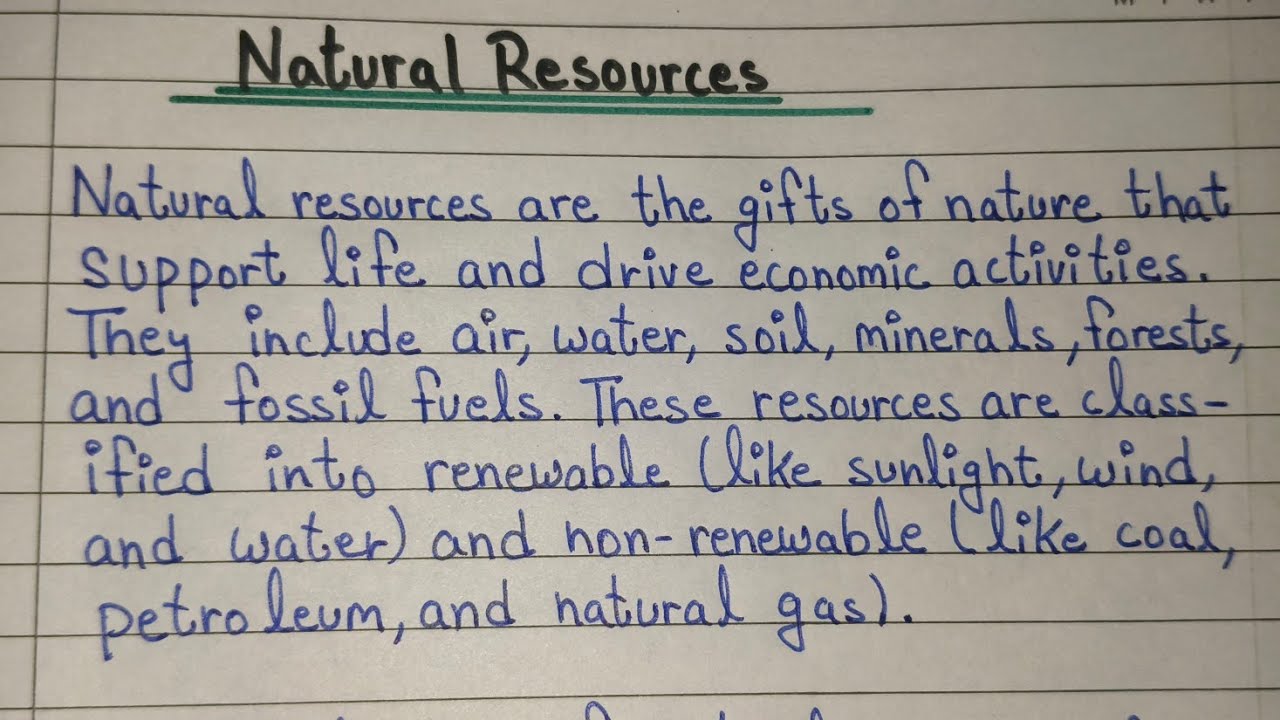 Natural Resources
Natural resources are the gifts of nature that
support life and drive economic activities.
They include air, water, soil, minerals, forests,
and fossil fuels. These resources are class-
ified into renewable (like sunlight, wind,
and water) and non-renewable (like coal,
petroleum, and natural gas).